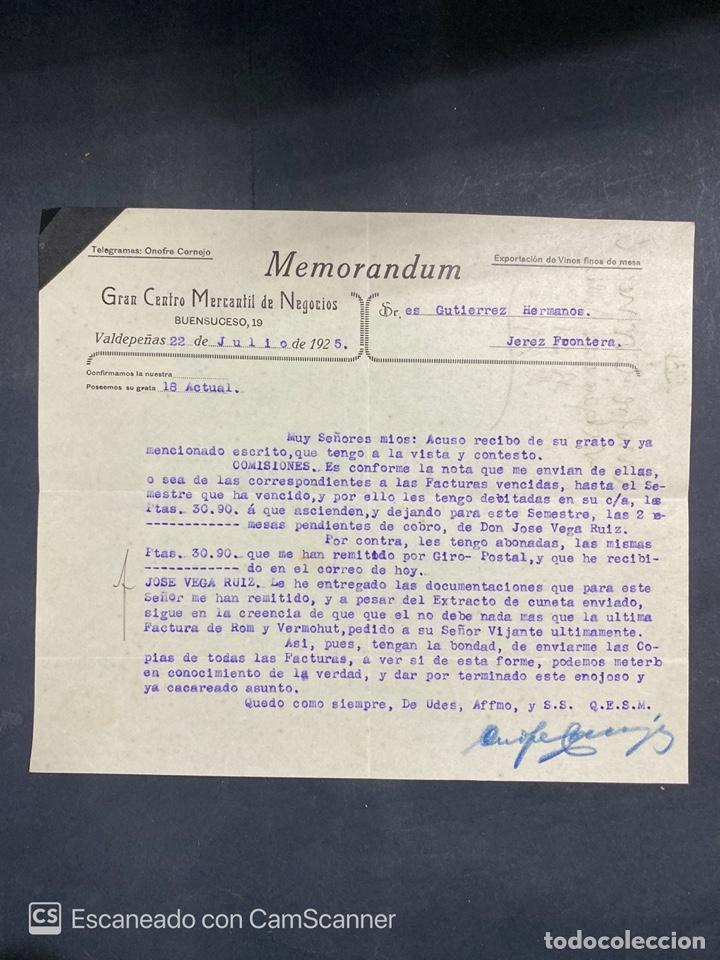 Telegramas: Onofre Cornejo
Memorandum
Exportación de Vinos finos de mesa
Gran Centro Mercantil de Negocios
BUENSUCESO, 19
Valdepeñas 22 de Julio de 1925.
Sr.es Gutierrez Hermanos.
Jerez Fontera.
Confirmamos la nuestra
Poseemos su grata 18 Actual.
Muy Señores mios: Acuso recibo de su grato y ya
mencionado escrito,que tengo a la vista y contesto.
COMISIONES. Es conforme la nota que me envian de ellas,
o sea de las correspondientes a las Facturas vencidas, hasta el Se-
mestre que ha vencido,y por ello les tengo debitadas en su c/a, las
Ptas. 30.90. á que ascienden, y dejando para este Semestre, las 2 e-
------------ mesas pendientes de cobro, de Don Jose Vega Ruiz.
Por contra, les tengo abonadas, las mismas
Ptas. 30.90. que me han remitido por Giro- Postal,y que he recibi-
------------do en el correo de hoy.
JOSE VEGA RUIZ. Le he entregado las documentaciones que para este
Señor me han remitido, y a pesar del Extracto de cuneta enviado,
sigue en la creencia de que que el no debe nada mas que la ultima
Factura de Rom y Vermohut,pedido a su Señor Vijante ultimamente.
Asi, pues, tengan la bondad, de enviarme las Co-
pias de todas las Facturas, a ver si de esta forme, podemos meterb
en conocimiento de la verdad, y dar por terminado este enojoso y
ya cacareado asunto.
Quedo como siempre, De Udes, Affmo, y S.S. Q.E.S.M.
Onofre Cornejo
CS Escaneado con CamScanner
todocoleccion